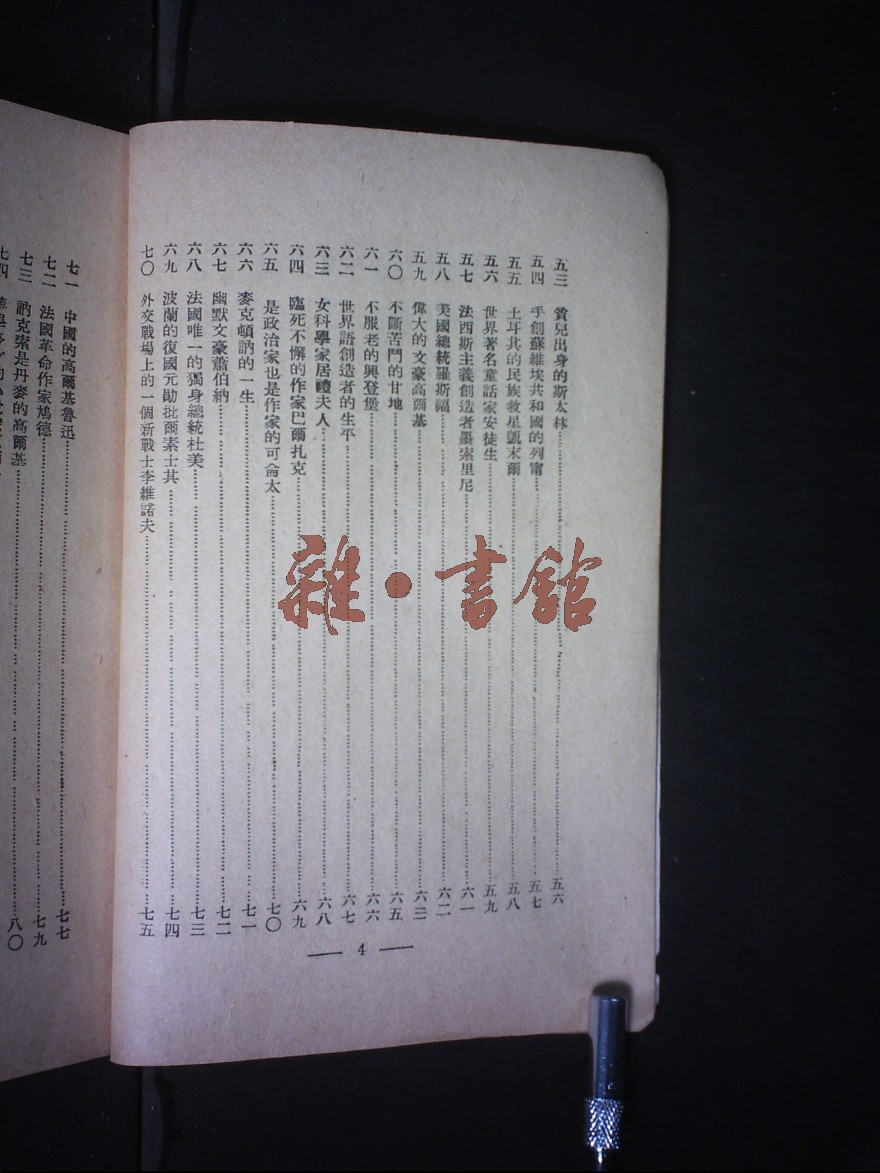 五三 貧兒出身的斯太林 五六
五四 手創蘇維埃共和國的列甯 五七
五五 土耳其的民族救星凱末爾 五八
五六 世界著名童話家安徒生 五九
五七 法西斯主義創造者墨索里尼 六一
五八 美國總統羅斯福 六二
五九 偉大的文豪高爾基 六三
六〇 不斷苦鬥的甘地 六五
六一 不服老的興登堡 六六
六二 世界語創造者的生平 六七
六三 女科學家居禮夫人 六八
六四 臨死不懈的作家巴爾扎克 六九
六五 是政治家也是作家的可侖太 七〇
六六 麥克頓訥的一生 七一
六七 幽默文豪蕭伯納 七二
六八 法國唯一的獨身總統杜美 七三
六九 波蘭的復國元勛批爾素士其 七四
七〇 外交戰場上的一個新戰士李維諾夫 七五
— 4 —
七一 中國的高爾基魯迅 七七
七二 法國革命作家鳩德 七九
七三 訥克索是丹麥的高爾基 八〇
七四
雜·書館